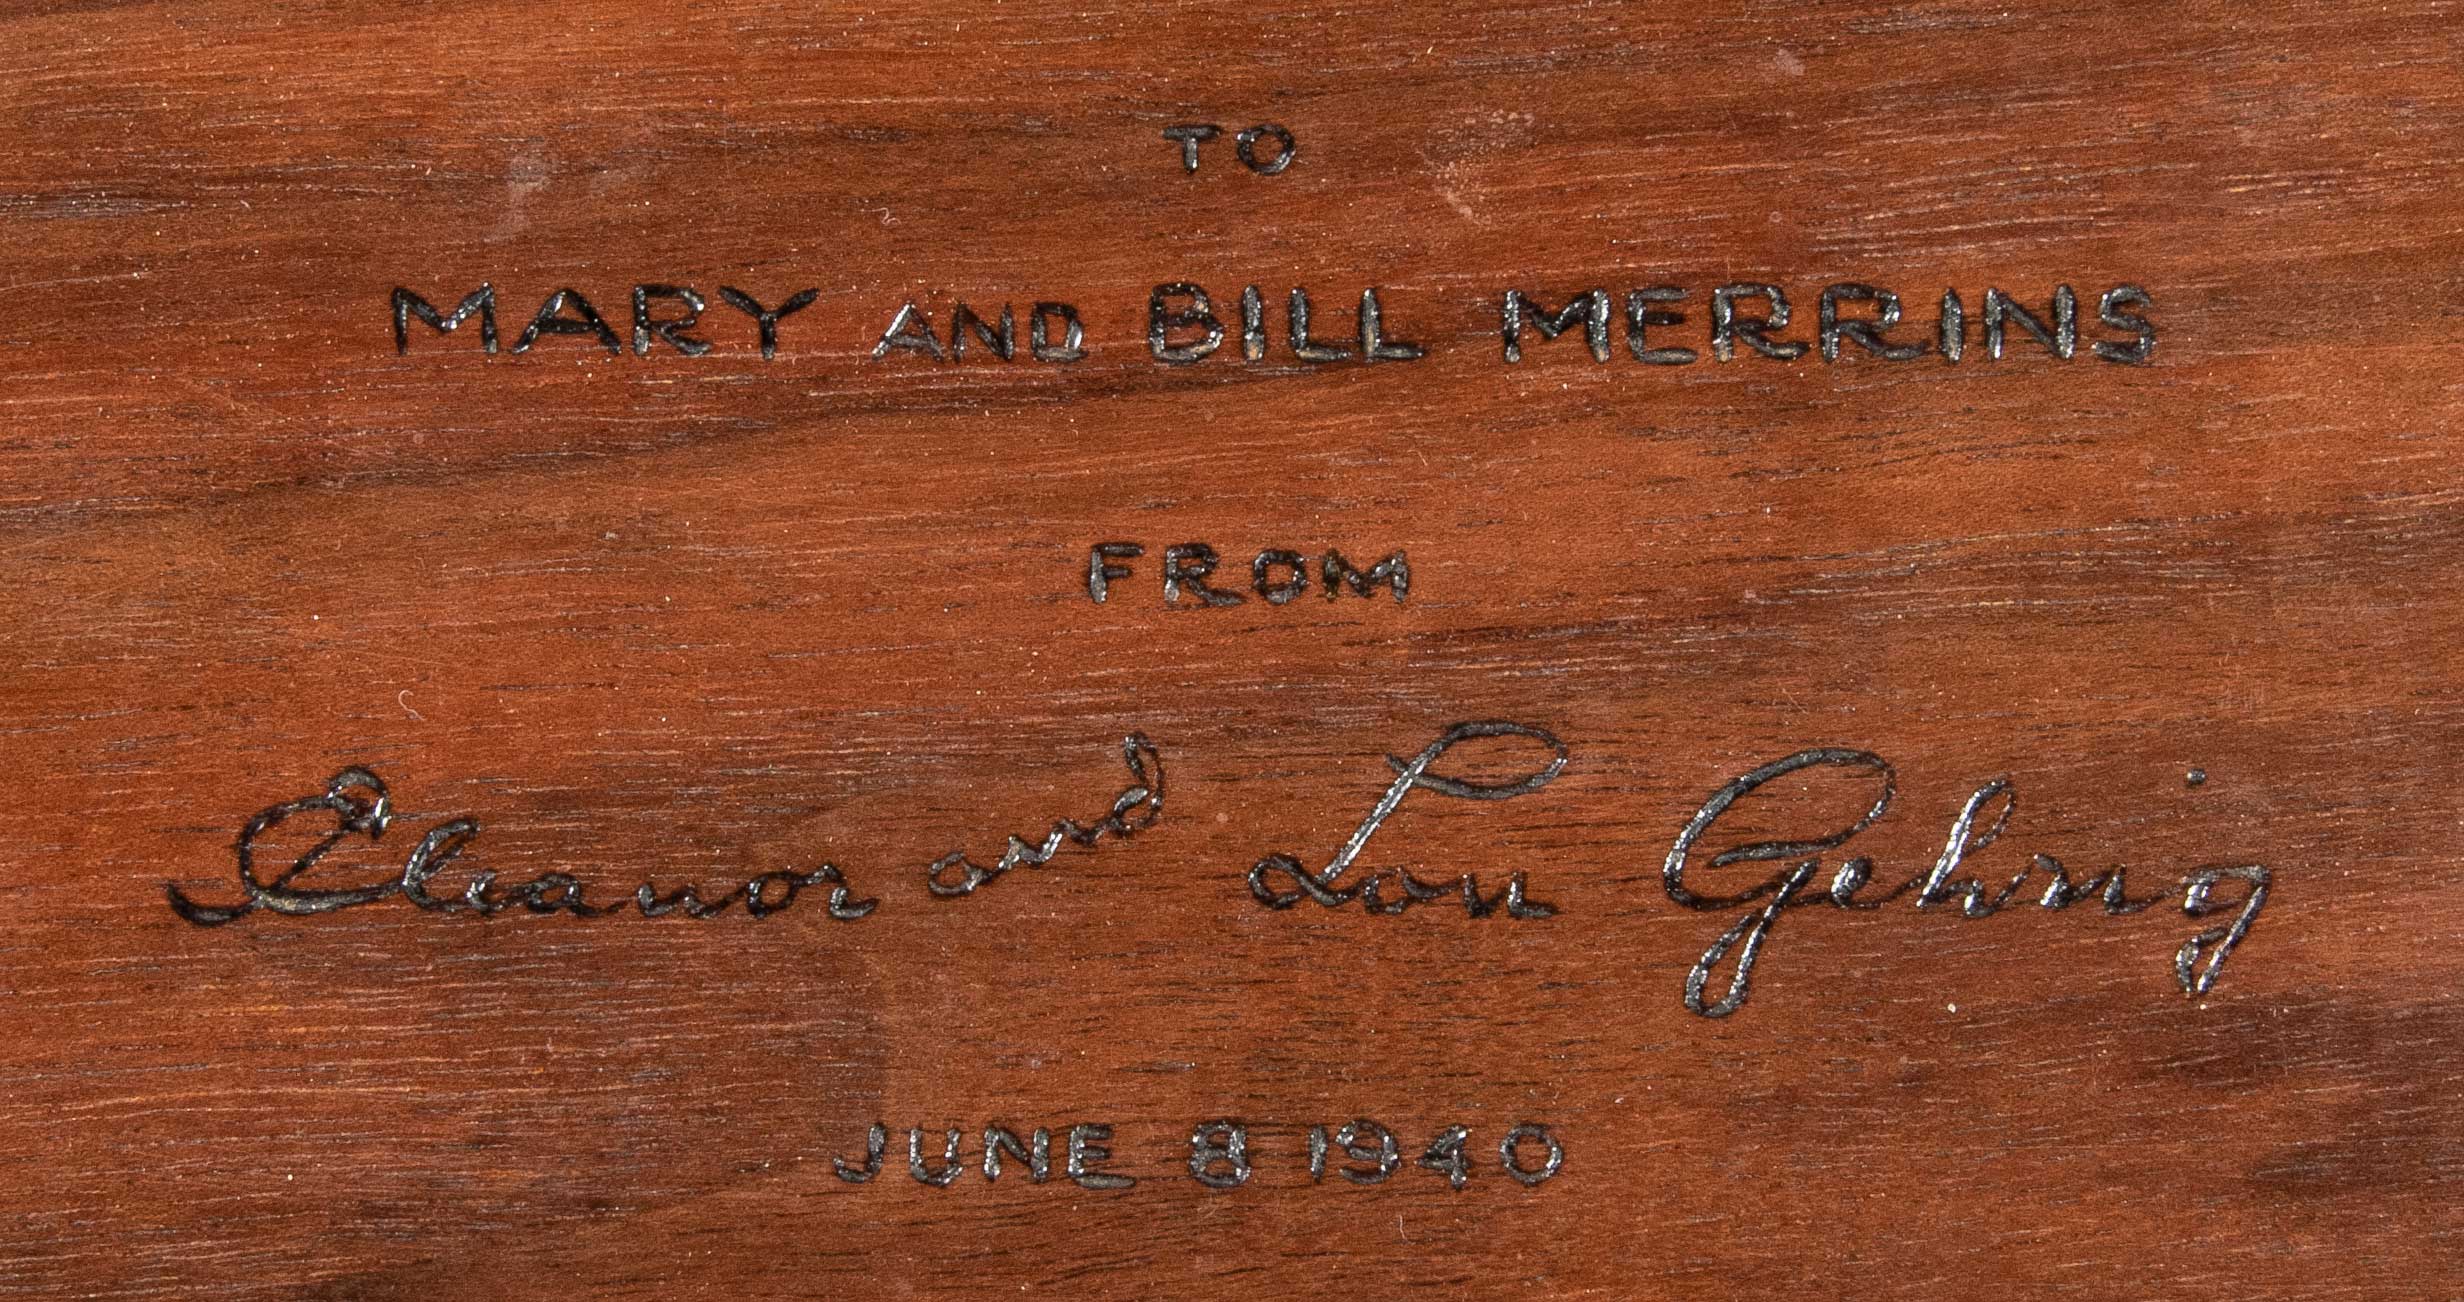 TO
MARY AND BILL MERRINS
FROM
Eleanor and Lou Gehrig
JUNE 8 1940